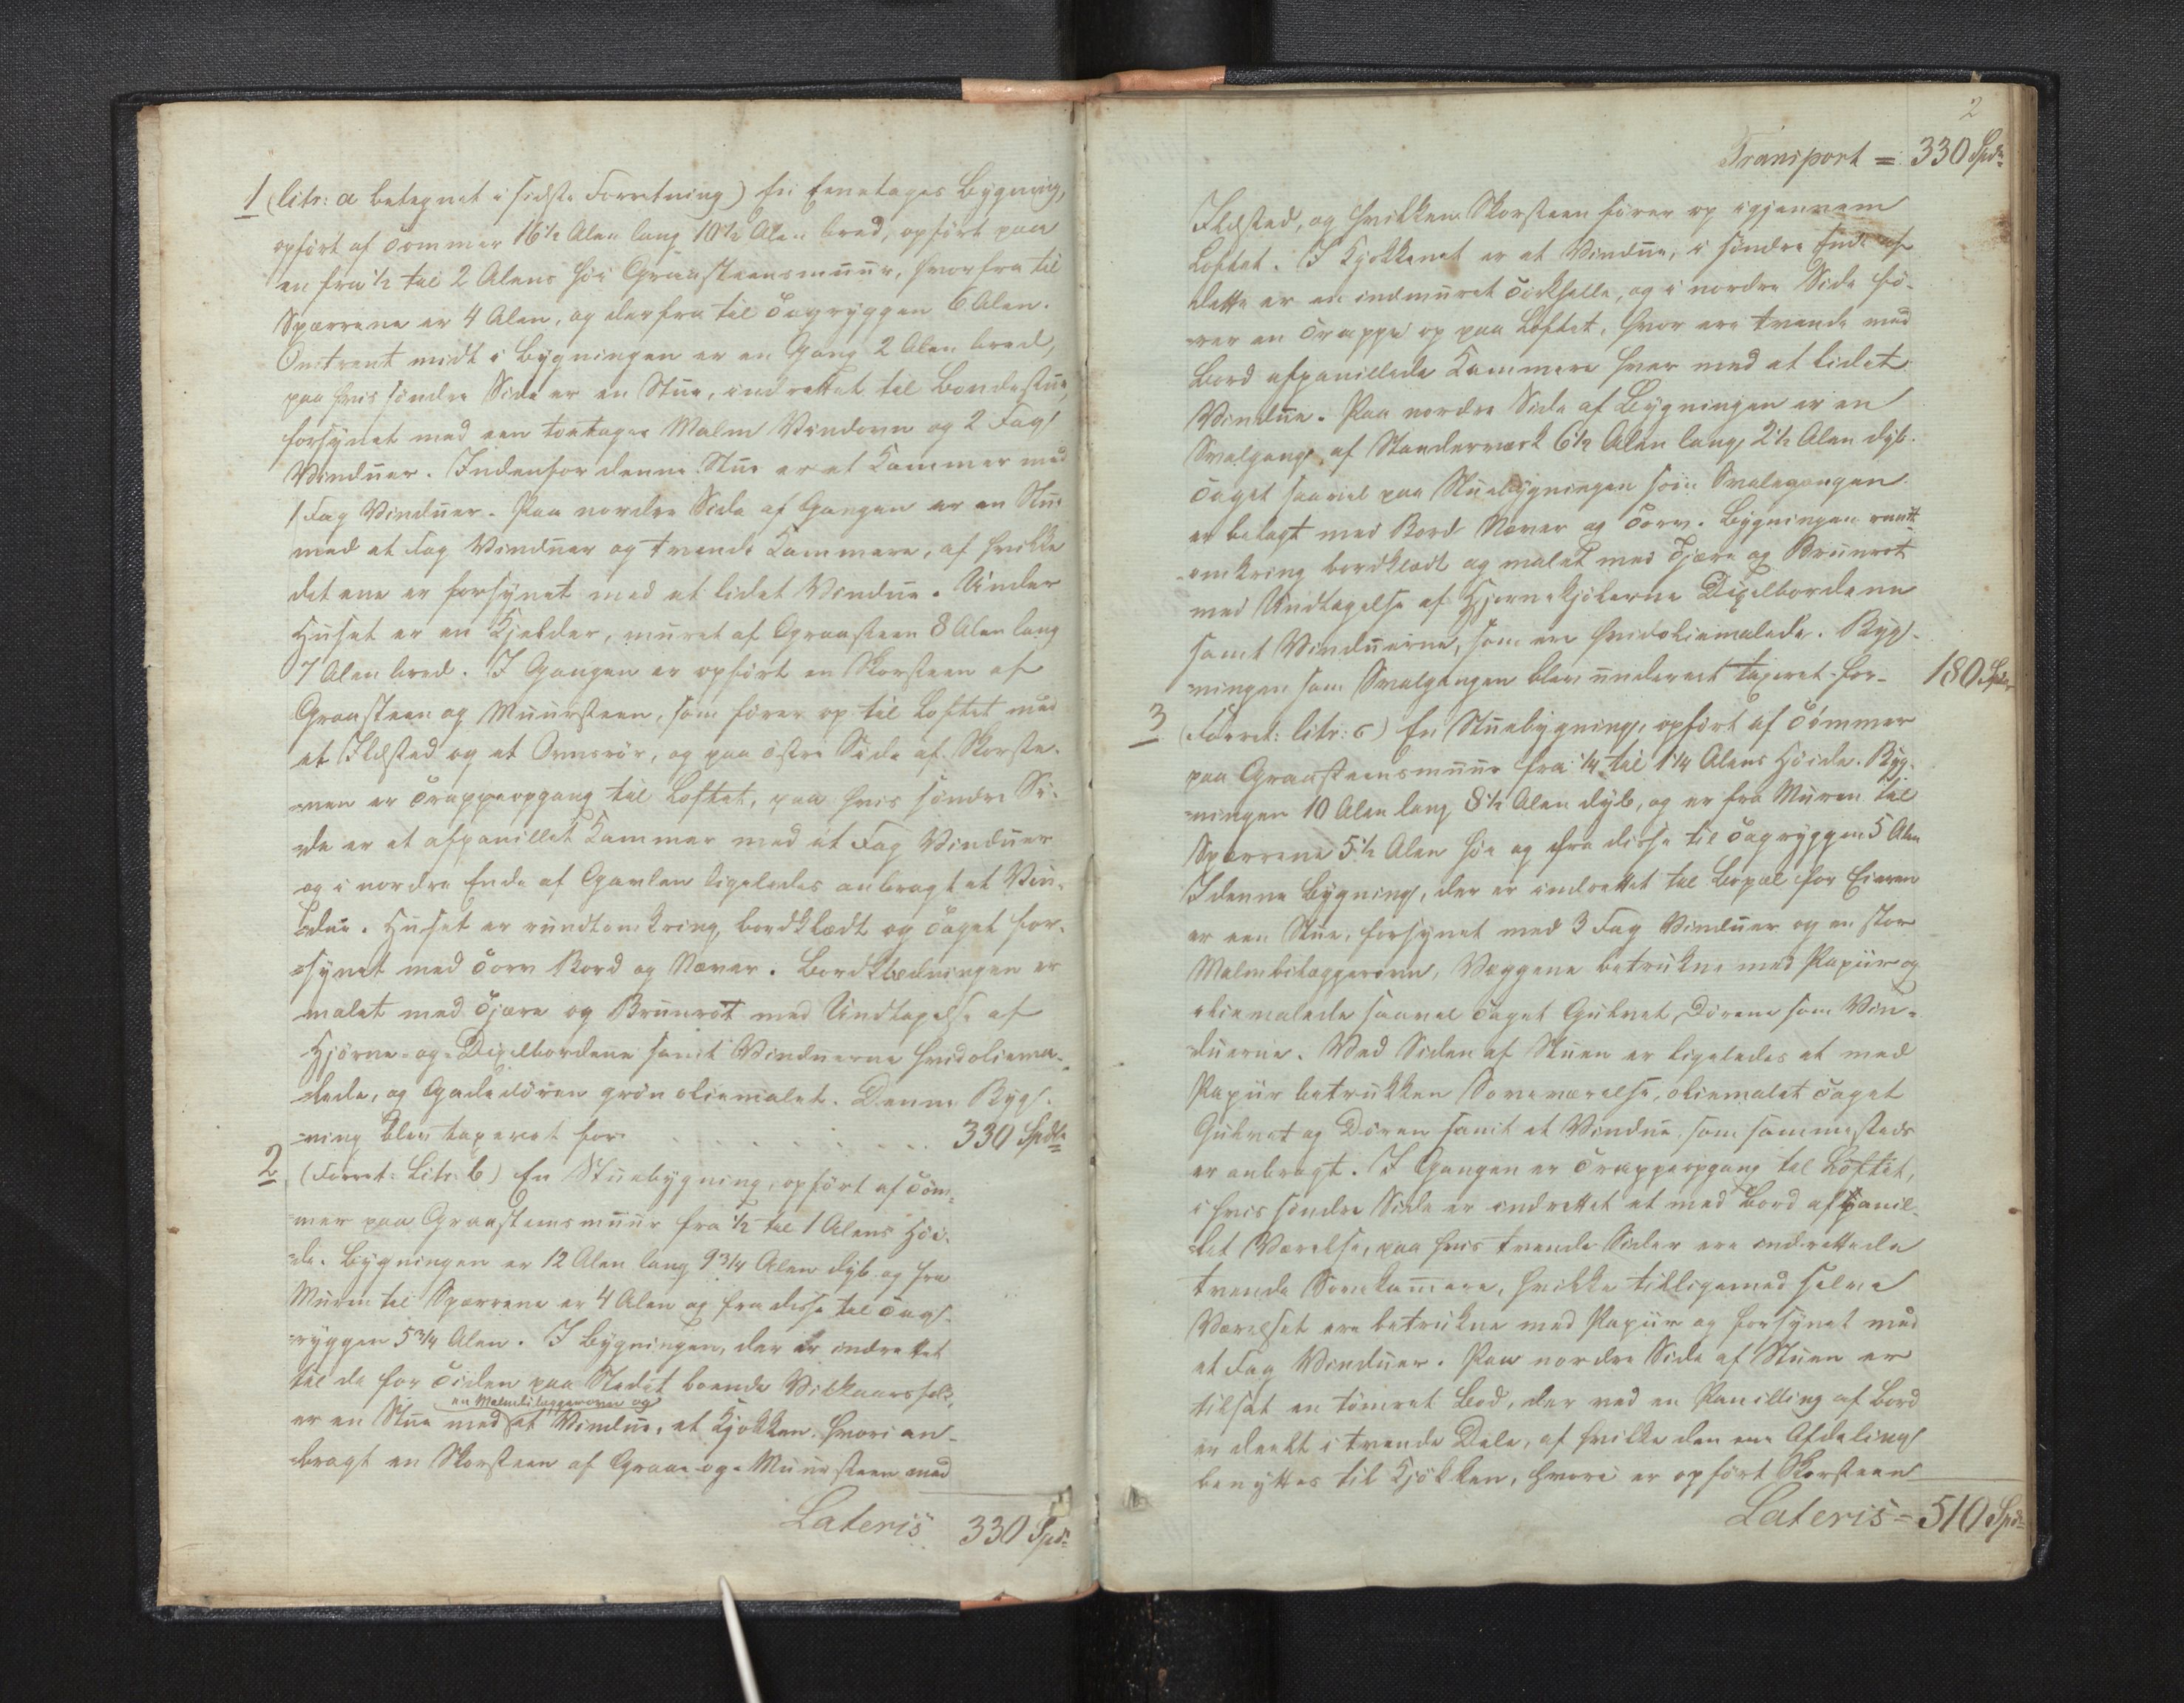 1 (litr: a betegnet i sidste Forretning) En Eenetages Bygning,
opført af Tømmer 16½ Alen lang 10½ Alen bred, opført paa
en fra ½ til 2 Alens høi Graasteensmuur, hvorfra til
Sparrene er 4 Alen, og derfra til Tagryggen 6 Alen.
Omtrent midt i Bygningen er en Gang 2 Alen bred,
paa hvis søndre Side er en Stue, indrettet til Bondestue,
forsynet med een toetages Malm Vindovn og 2 Fag
Vinduer. Indenfor denne Stue er et Kammer med
1 Fag Vinduer. Paa nordre Side af Gangen er en Stue
med et Fag Vinduer og tvende Kammere, af hvilke
det ene er forsynet med et lidet Vindue. Under
Huset er en Kjelder, muret af Graasteen 8 Alen lang
7 Alen bred. I Gangen er opført en Skorsteen af
Graasteen og Muursteen, som fører op til Loftet med
et Ildsted og et Ovnsrør, og paa østre Side af Skorste-
-nen er Trappeopgang til Loftet, paa hvis søndre Si-
-de er et afpanillet Kammer med et Fag Vinduer
og i nordre Ende af Gavlen ligeledes anbragt et Vin-
-due. Huset er rundtomkring bordklædt og Taget for-
-synet med Torv Bord og Næver. Bordklædningen er
malet med Tjære og Bruunrøt med Undtagelse af
Hjørne- og Digelbordene samt Vinduerne hvidoliema-
-lede, og Gadedøren grøn oliemalet. Denne Byg-
-ning blev taxeret for . . . . . . . . 330 Spdlr
2 (Forret: Litr: b) En Stuebygning, opført af Tøm-
-mer paa Graasteensmuur fra ½ til 1 Alens Høi-
-de. Bygningen er 12 Alen lang 9¾ Alen dyb og fra
Muren til Sparrene er 4 Alen og fra disse til Tag-
-ryggen 5¾ Alen. I Bygningen, der er indrettet
til de for Tiden paa Stedet boende Vilkaarsfolk,
en Malmbilæggerovn og
er en Stue med et Vindue, et Kjøkken, hvori an-
-bragt en Skorsteen af Graae- og Muursteen med
Lateris 330 Spd:
2
Transport = 330 Spd:
Ildsted, og hvilken Skorsteen fører op igjennem
Loftet. I Kjøkkenet er et Vindue, i søndre Ende af
dette er en indmuret Torkhelle, og i nordre Side fø-
-rer en Trappe op paa Loftet, hvor ere tvende med
Bord afpanillede Kammere hver med et lidet
Vindue. Paa nordre Side af Bygningen er en
Svalgang, af Standerværk 6½ Alen lang, 2½ Alen dyb.
Taget saavel paa Stuebygningen som Svalegangen
er belagt med Bord Næver og Torv. Bygningen rundt
-omkring bordklædt og malet med Tjære og Bruunrøt
med Undtagelse af Hjørnekjølerne Digelbordene
samt Vinduerne, som ere hvidoliemalede. Byg-
-ningen som Svalgangen blev underet taxeret for- 180 Spdr
3 (Forret: litr: c) En Stuebygning, opført af Tømmer
paa Graasteensmuur fra ¼ til 1¼ Alens Høide. Byg-
-ningen 10 Alen lang 8½ Alen dyb, og er fra Muren til
Sparrene 5½ Alen høi og fra disse til Tagryggen 5 Alen
I denne Bygning, der er indrettet til Bopæl for Eieren
er een Stue, forsynet med 3 Fag Vinduer og en stor
Malmbilæggerovn, Væggene betrukne med Papiir og
oliemalede saavel Taget Gulvet, Dørene som Vin-
-duerne. Ved Siden af Stuen er ligeledes et med
Papiir betrukken Soveværelse, oliemalet Taget
Gulvet og Døren samt et Vindue som sammesteds
er anbragt. I Gangen er Trappeopgang til Loftet,
i hvis søndre Side er indrettet et med Bord afpanil-
-let Værelse, paa hvis tvende Sider ere indrettede
tvende Sovekamere, hvilke tilligemed selve
Værelset ere betrukne med Papiir og forsynet med
et Fag Vinduer. Paa nordre Side af Stuen er
tilsat en tømret Bod, der ved en Panilling af Bord
er deelt i tvende Dele, af hvilke den ene Afdeling
benyttes til Kjøkken, hvori er opført Skorsteen
Lateris = 510 Spd: